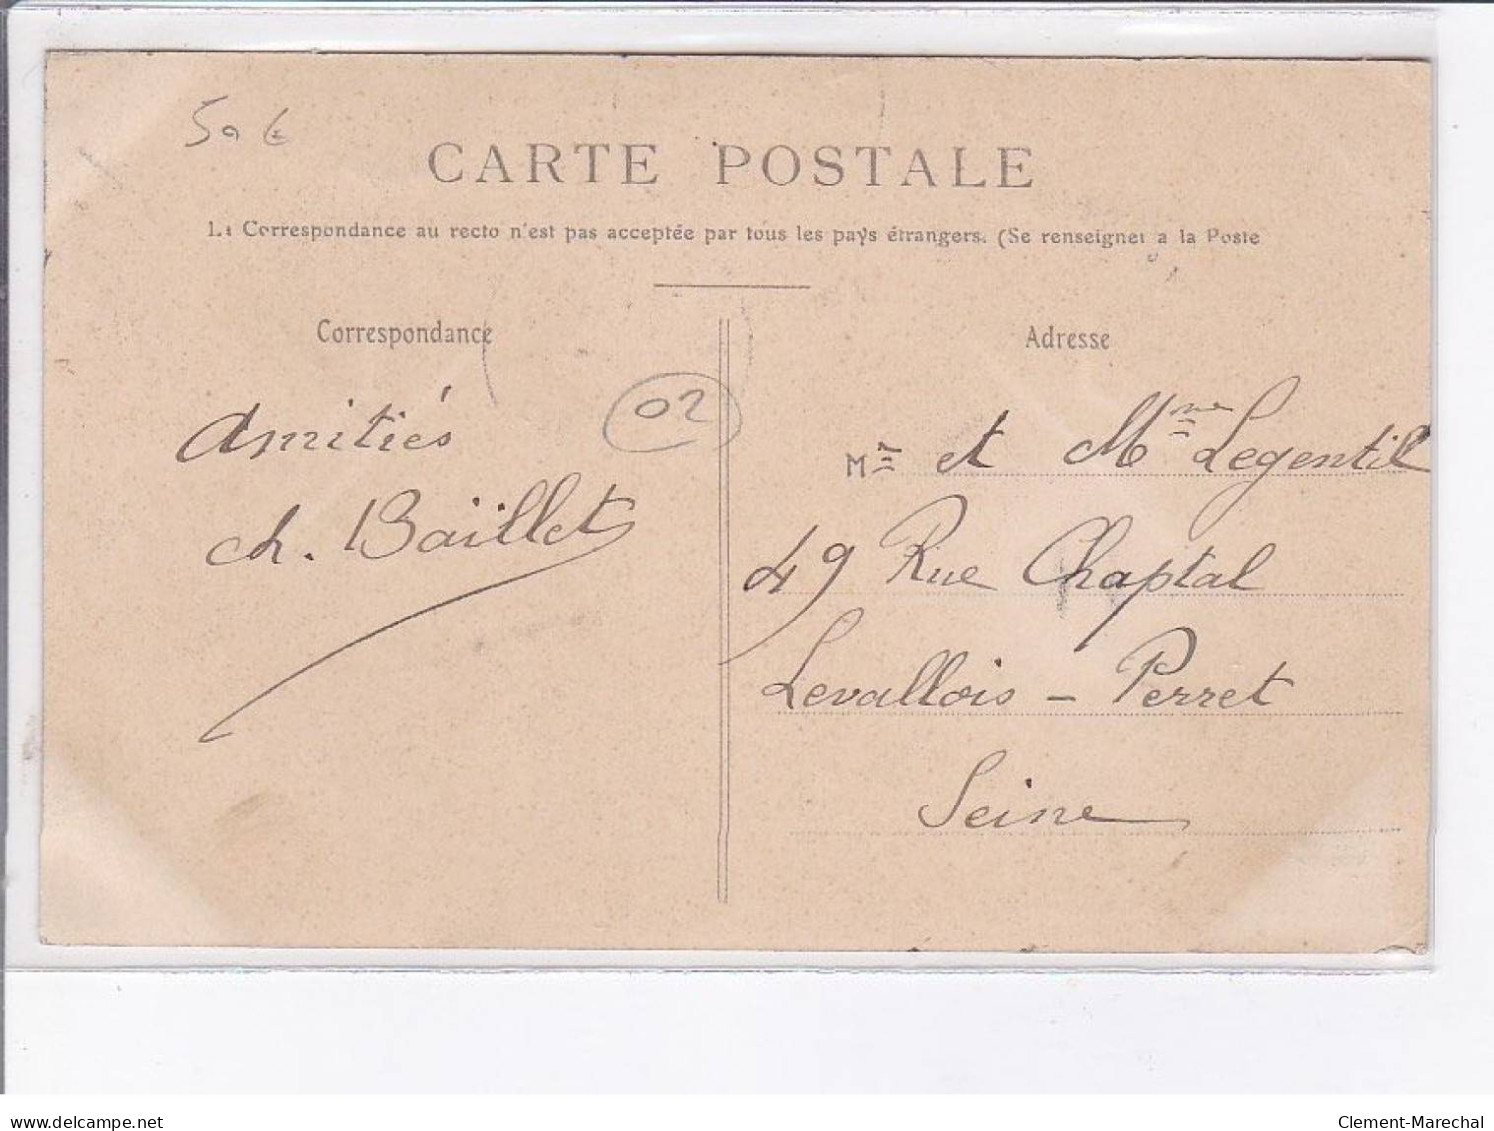 50 €
CARTE POSTALE
La Correspondance au recto n'est pas acceptée par tous les pays étrangers. (Se renseigner a la Poste
Correspondance
Amitiés
02
ch. Baillet
Adresse
Mr et Mme Legentil
49 Rue Chaptal
Levallois - Perret
Seine
delcampe.net
Clement-Marechal